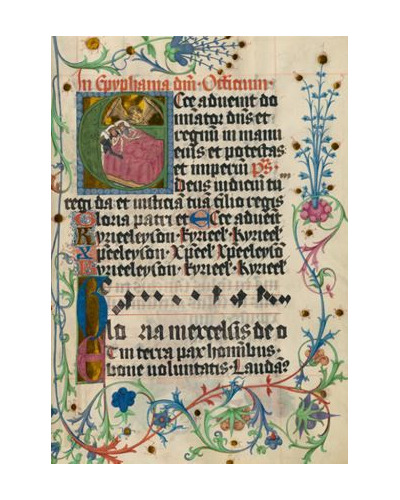 In Epyphania dm̄ Officium
Ecce advenit do
minator dn̄s et
regnū in manu
eius et potestas
et imperiū p̄s
Deus iudiciū tu
regi da et iusticiā tuā filio regis
Gloria patri et Ecce advēit
Kyrieeleyson Kyrieel Kyrieel
Xpeeleyson Xpeel Xpeeleysō
Kyrieeleyson Kyrieel Kyrieel
Glo ria in excelsis de o
Et in terra pax hominibus
bone voluntatis Laudam̄?